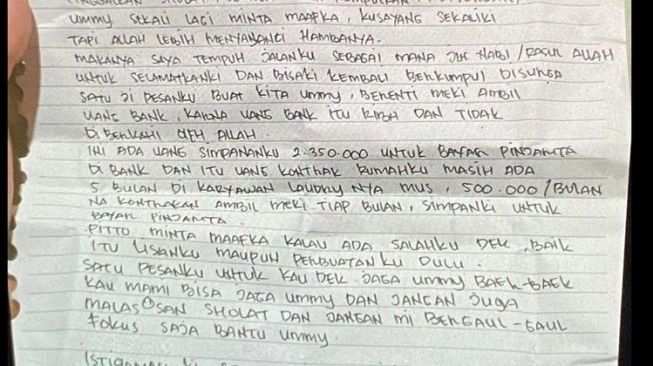 UMMY SEKALI LAGI MINTA MAAFKA, KUSAYANG SEKALIKI
TAPI ALLAH LEBIH MENYAYANGI HAMBANYA.
MAKANYA SAYA TEMPUH JALANKU SEBAGAI MANA JLK NABI/RASUL ALLAH
UNTUK SELAMATKANKI DAN BISAKI KEMBALI BERKUMPUL DISURGA
SATU JI PESANKU BUAT KITA UMMY, BERENTI MEKI AMBIL
UANG BANK, KARNA UANG BANK ITU RIBA DAN TIDAK
DIBERKAHI OLEH ALLAH.
INI ADA UANG SIMPANANKU 2.350.000 UNTUK BAYAR PINJAMTA
DI BANK DAN ITU UANG KONTRAK RUMAHKU MASIH ADA
5 BULAN DI KARYAWAN LAUDRY NYA MUS, 500.000/BULAN
NA KONTRAKAN AMBIL MEKI TIAP BULAN, SIMPANKI UNTUK
BAYAR PINJAMTA.
FITTO MINTA MAAFKA KALAU ADA SALAHKU DEK, BAIK
ITU LISANKU MAUPUN PERBUATANKU DULU.
SATU PESANKU UNTUK KAU DEK JAGA UMMY BAEK-BAEK
KAU MAMI BISA JAGA UMMY DAN JANGAN JUGA
MALAS SAN SHOLAT DAN JANGAN MI BERGAUL-GAUL
FOKUS SAJA BANTU UMMY.